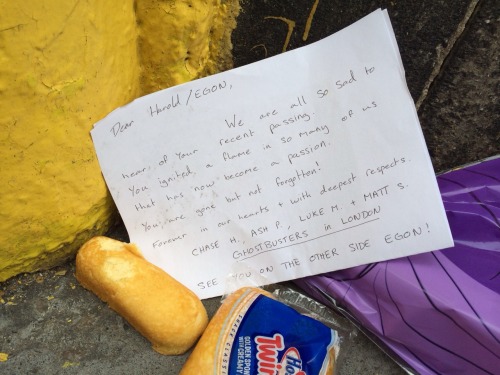 Dear Harold/EGON,
We are all so sad to
hear of your recent passing.
You ignited a flame in so many of us
that has now become a passion.
You are gone but not forgotton!
Forever in our hearts + with deepest respects.
CHASE H., ASH P., LUKE M. + MATT S.
GHOSTBUSTERS in LONDON
SEE YOU ON THE OTHER SIDE EGON!
GOLDEN SPON
WITH CREAM